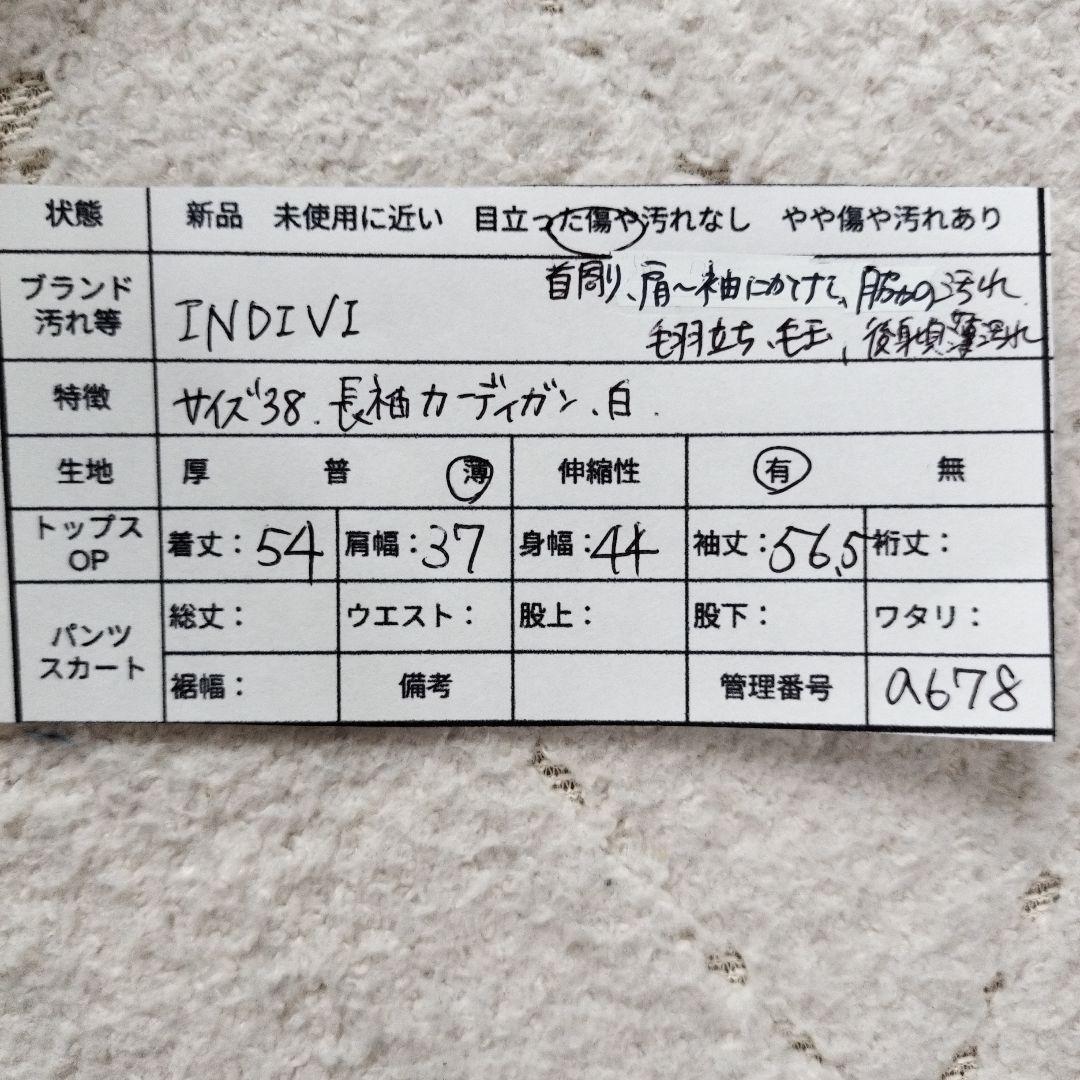 状態 新品 未使用に近い 目立った傷や汚れなし やや傷や汚れあり
ブランド 汚れ等 INDIVI
首周り、肩〜袖にかけて、脇の汚れ
毛羽立ち、毛玉、後身頃薄汚れ
特徴 サイズ38.長袖カーディガン、白.
生地 厚 普 薄 伸縮性 有 無
トップス OP 着丈：54 肩幅：37 身幅：44 袖丈：56.5 裄丈：
パンツ スカート 総丈： ウエスト： 股上： 股下： ワタリ：
裾幅： 備考 管理番号 a678